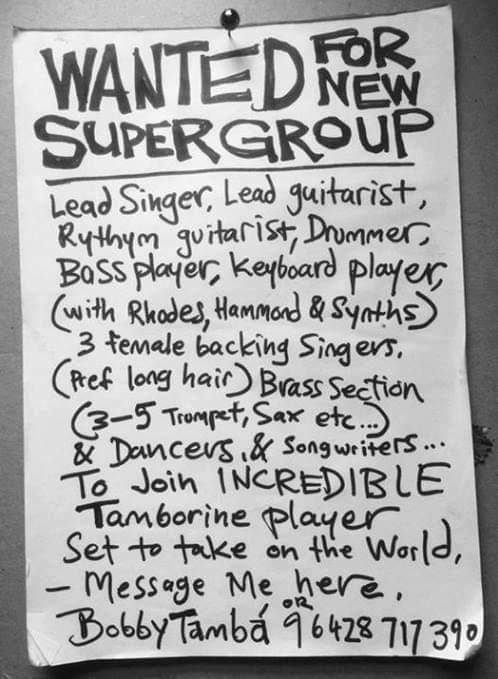 WANTED FOR NEW
SUPERGROUP
Lead Singer, Lead guitarist,
Rythym guitarist, Drummer,
Bass player, Keyboard player,
(with Rhodes, Hammond & Synths)
3 female backing Singers,
(Pref long hair) Brass Section
(3-5 Trumpet, Sax etc...)
& Dancers, & Songwriters...
To Join INCREDIBLE
Tamborine player
Set to take on the World,
- Message Me here,
Bobby Tambá or 96428 717 390